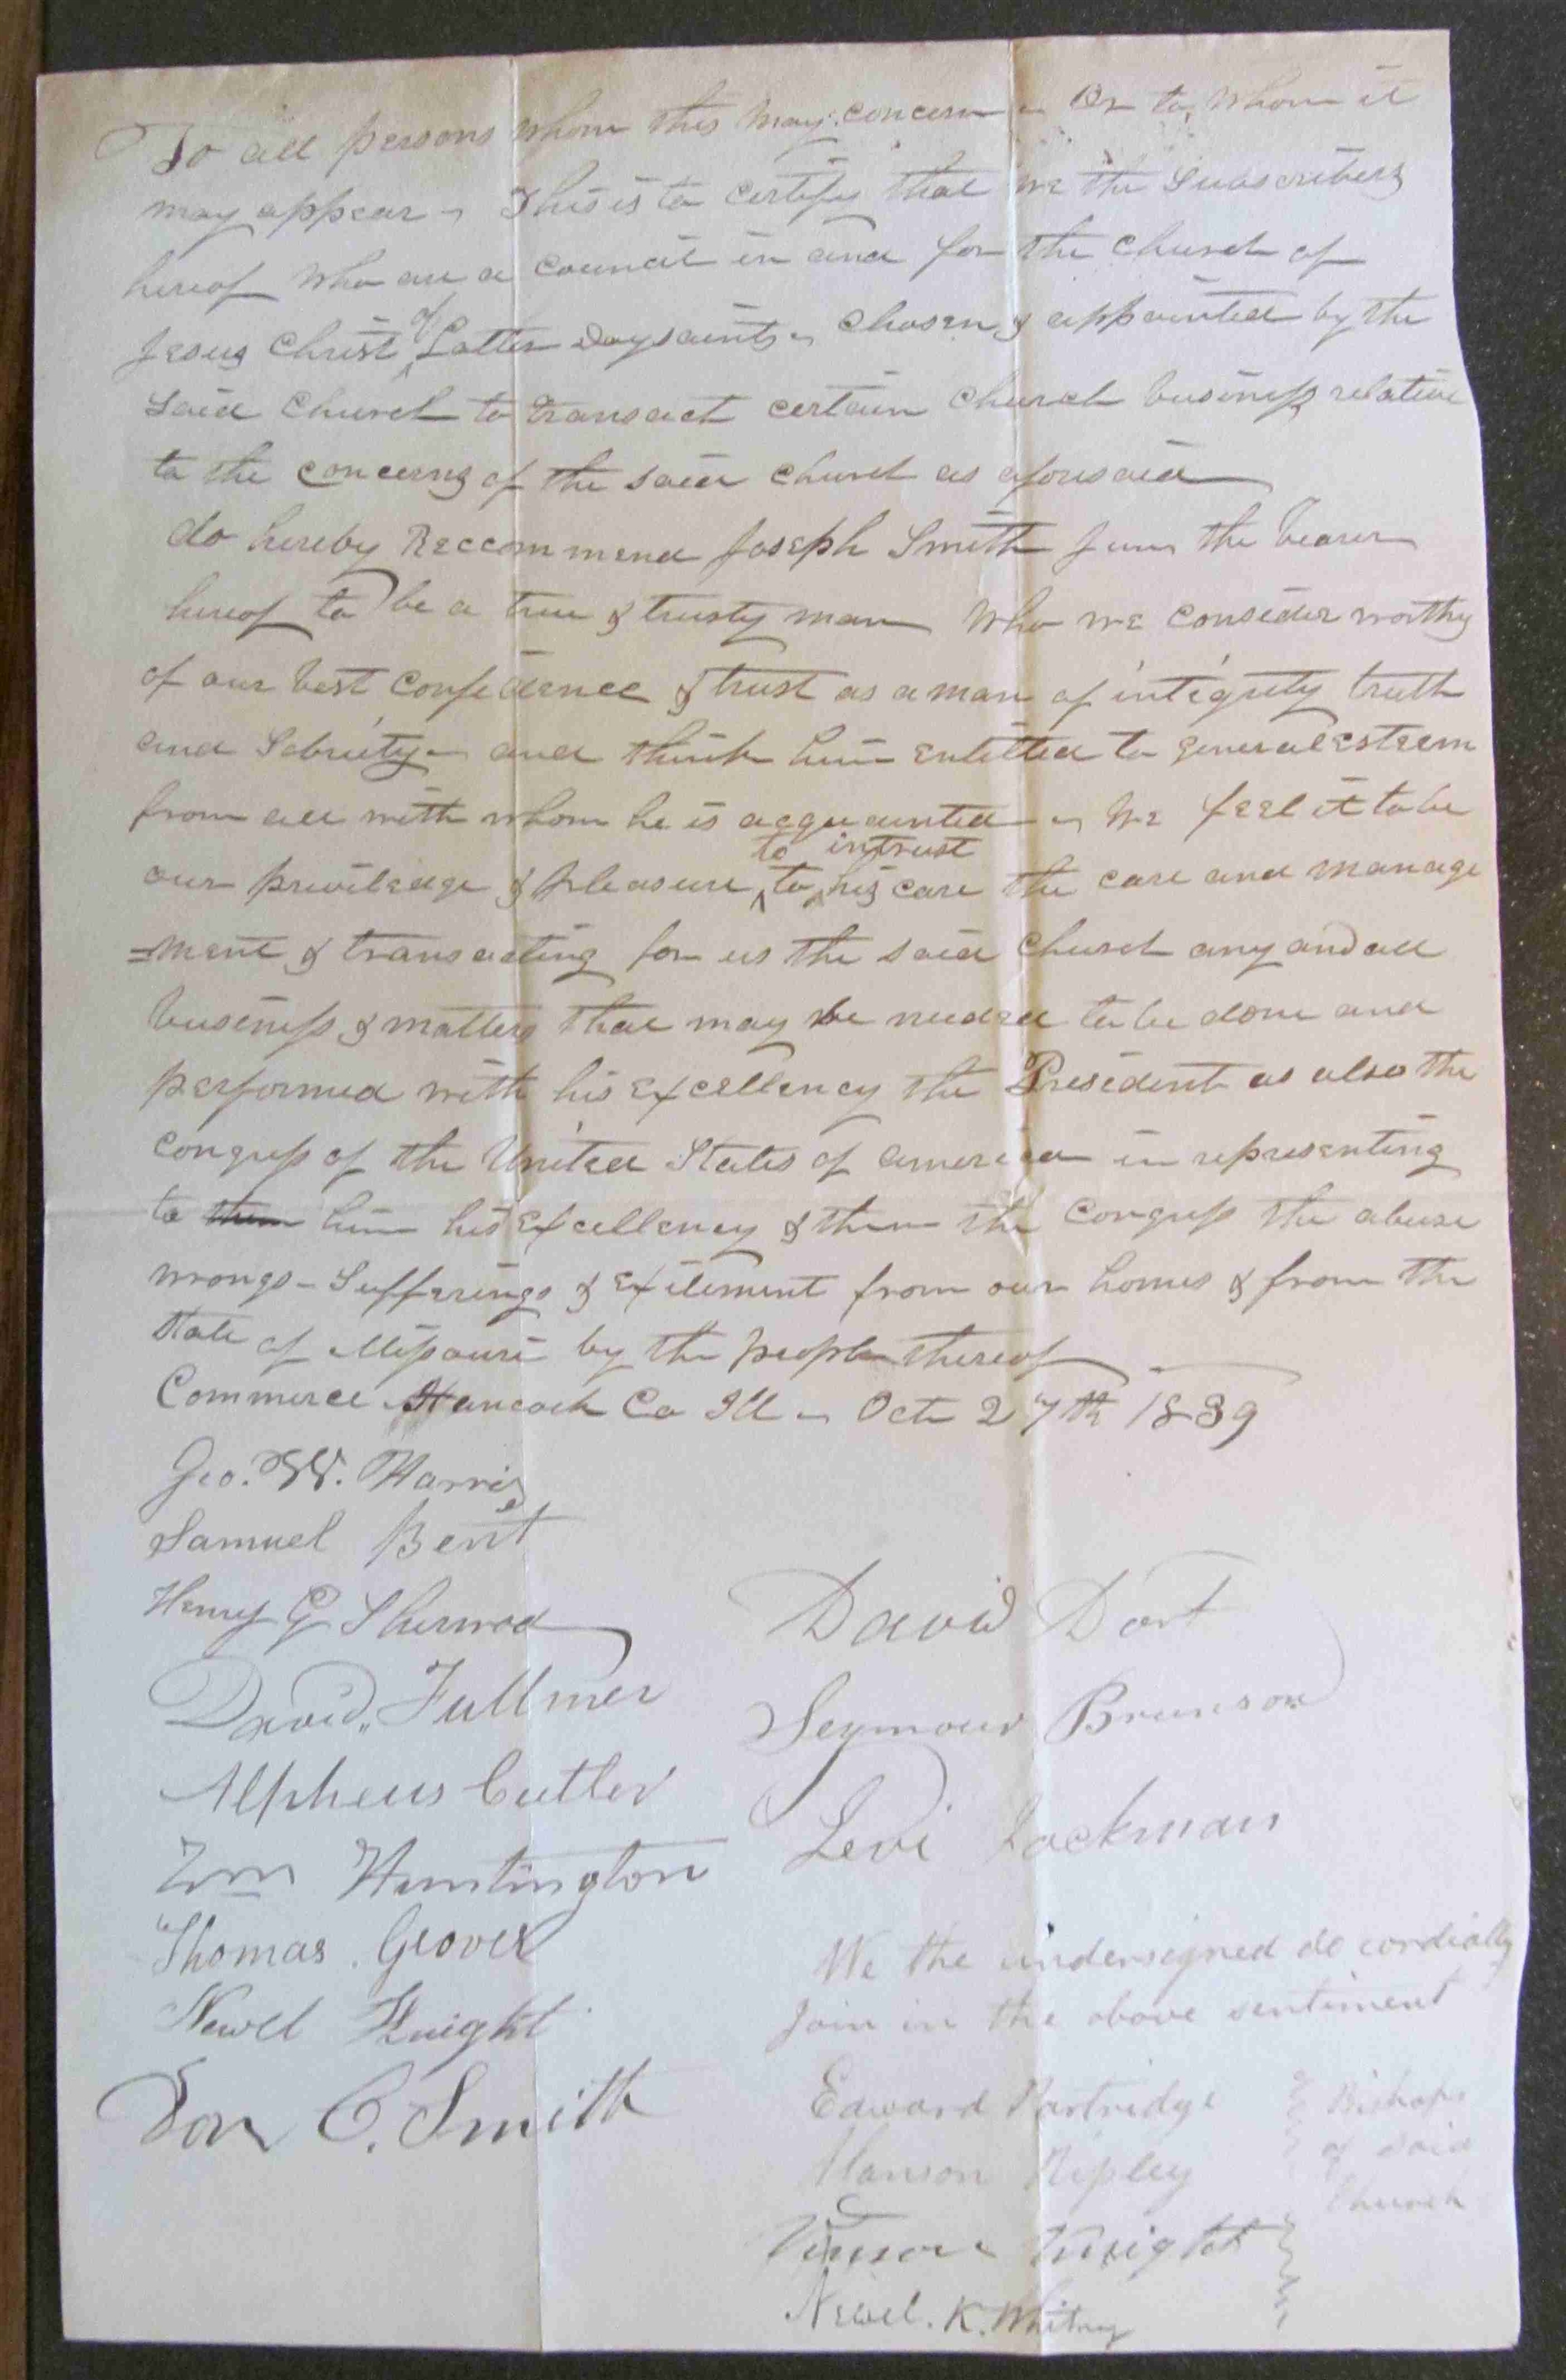 To all persons whom this may concern - Or to whom it
may appear - This is to certify that we the Subscribers
hereof who are a council in and for the church of
Jesus Christ of Latter Day saints - chosen & appointed by the
said church to transact certain church business relative
to the concerns of the said church as aforesaid
do hereby Reccommend Joseph Smith Junr the bearer
hereof to be a true & trusty man who we consider worthy
of our best confidence & trust as a man of integrity truth
and Sobriety - and think him entitled to general esteem
from all with whom he is acquainted - We feel it to be
our priviledge & pleasure to intrust to his care the care and manage
=ment & transacting for us the said church any and all
business & matters that may be needed to be done and
performed with his Excellency the President as also the
congress of the United States of america in representing
to them him his Excellency & them the congress the abuse
wrongs - Sufferings & exilement from our homes & from the
State of Missouri by the people thereof
Commerce Hancock Co Ill - Oct 27th 1839
Geo. W. Harris
Samuel Bent
Henry G Sherwood
David Fullmer
Alpheus Cutler
Wm Huntington
Thomas Grover
Newel Knight
Don C. Smith
David Dort
Seymour Brunson
Levi Jackman
We the undersigned do cordially
Join in the above sentiment
Edward Partridge
Alanson Ripley
Vinson Knight
Newel. K. Whitney
Bishops
of said
Church